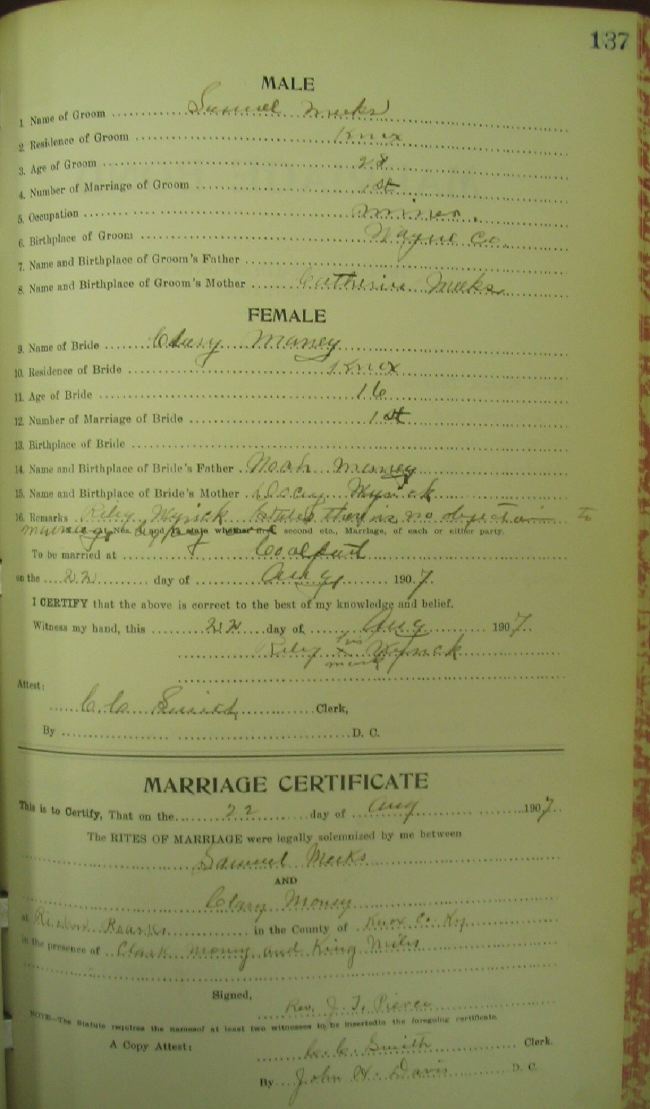 137
MALE
1. Name of Groom Samuel Meeks
2. Residence of Groom Knox
3. Age of Groom 28
4. Number of Marriage of Groom 1st
5. Occupation miner.
6. Birthplace of Groom Wayne Co.
7. Name and Birthplace of Groom's Father
8. Name and Birthplace of Groom's Mother Catherine Meeks
FEMALE
9. Name of Bride Clary Maney
10. Residence of Bride Knox
11. Age of Bride 16
12. Number of Marriage of Bride 1st
13. Birthplace of Bride
14. Name and Birthplace of Bride's Father Noah Maney
15. Name and Birthplace of Bride's Mother Wyrick
16. Remarks Riley Wyrick states there is no objection to
second etc., Marriage, of each or either party.
To be married at Coalport
on the 22 day of Aug, 1907.
I CERTIFY that the above is correct to the best of my knowledge and belief.
Witness my hand, this 22 day of Aug 1907.
Riley his x mark Wyrick
Attest:
C C Smith Clerk,
By D. C.
MARRIAGE CERTIFICATE
This is to Certify, That on the 22 day of Aug 1907.
The RITES OF MARRIAGE were legally solemnized by me between
Samuel Meeks
AND
Clary Money
at in the County of Knox Co. Ky
in the presence of Clark Money and King Mills
Signed,
Rev. J. T. Pierce
NOTE—The Statute requires the namesof at least two witnesses to be insertedin the foregoing certificate.
A Copy Attest: C. C. Smith Clerk.
By John H. Davis D. C.